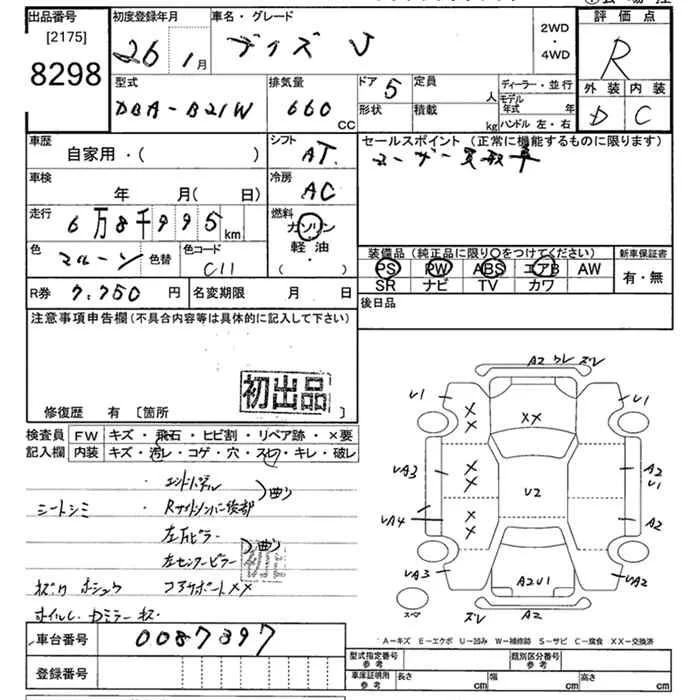 出品番号
[2175]
8298
初度登録年月
26 1月
車名・グレード
デイズ J
2WD
・
4WD
評価点
R
外装 内装
D C
型式
DBA-B21W
排気量
660 CC
ドア 5
定員 人
形状
積載 kg
ディーラー・並行
モデル年式 年
ハンドル 左・右
車歴
自家用・( )
シフト AT
セールスポイント (正常に機能するものに限ります)
ユーザー買取車
車検
年 月( 日)
冷房 AC
走行
6万8千995km
燃料
ガソリン
軽・油
( )
色 マルーン 色替
色コード C11
装備品 (純正品に限り○をつけてください)
PS PW ABS エアB AW
SR ナビ TV カワ
新車保証書
有・無
R券 7.750 円
名変期限 月 日
後日品
注意事項申告欄(不具合内容等は具体的に記入して下さい)
初出品
修復歴 有 [箇所 ]
検査員
記入欄
FW キズ・飛石・ヒビ割・リペア跡・×要
内装 キズ・汚レ・コゲ・穴・スレ・キレ・破レ
シートシミ
Rサイドメンバー後部
左センターピラー
コアサポートXX
車台番号 0087397
登録番号
A2
U1
XX
U1
UA3
U2
A2
U1
UA4
A2
UA3
A2U1
UA2
A2
A-キズ E-エクボ U-凹み W-補修跡 S-サビ C-腐食 XX-交換済
型式指定番号
参考
類別区分番号
参考
車庫証明用
参考
長さ cm
幅 cm
高さ cm